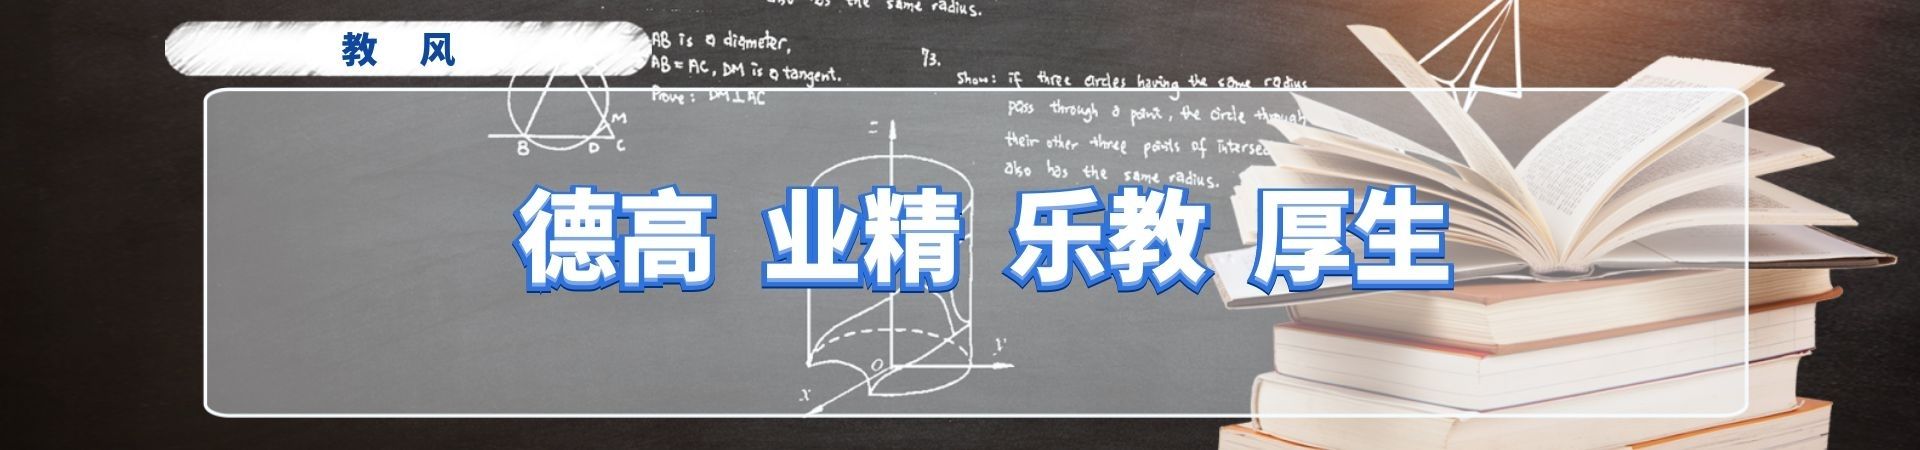 also has the same radius.
教 风
AB is a diameter,
AB = AC, DM is a tangent.
Prove: DM⊥AC
73.
Show: if three circles having the same radius
pass through a point, the circle through
their other three points of
also has the same radius.
M
B D C
z
德高 业精 乐教 厚生
O
y
x